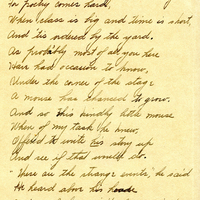 to poetry comes hard,
When class is big and time is short,
And its ordered by the yard.
As probably most of you here
Have had occasion to know,
Under the corner of the stage
A mouse has chanced to grow.
And so this kindly little mouse
When of my task he knew,
Offered to write his story up
And see if that would do.
"There are the strange events," he said
He heard above his head